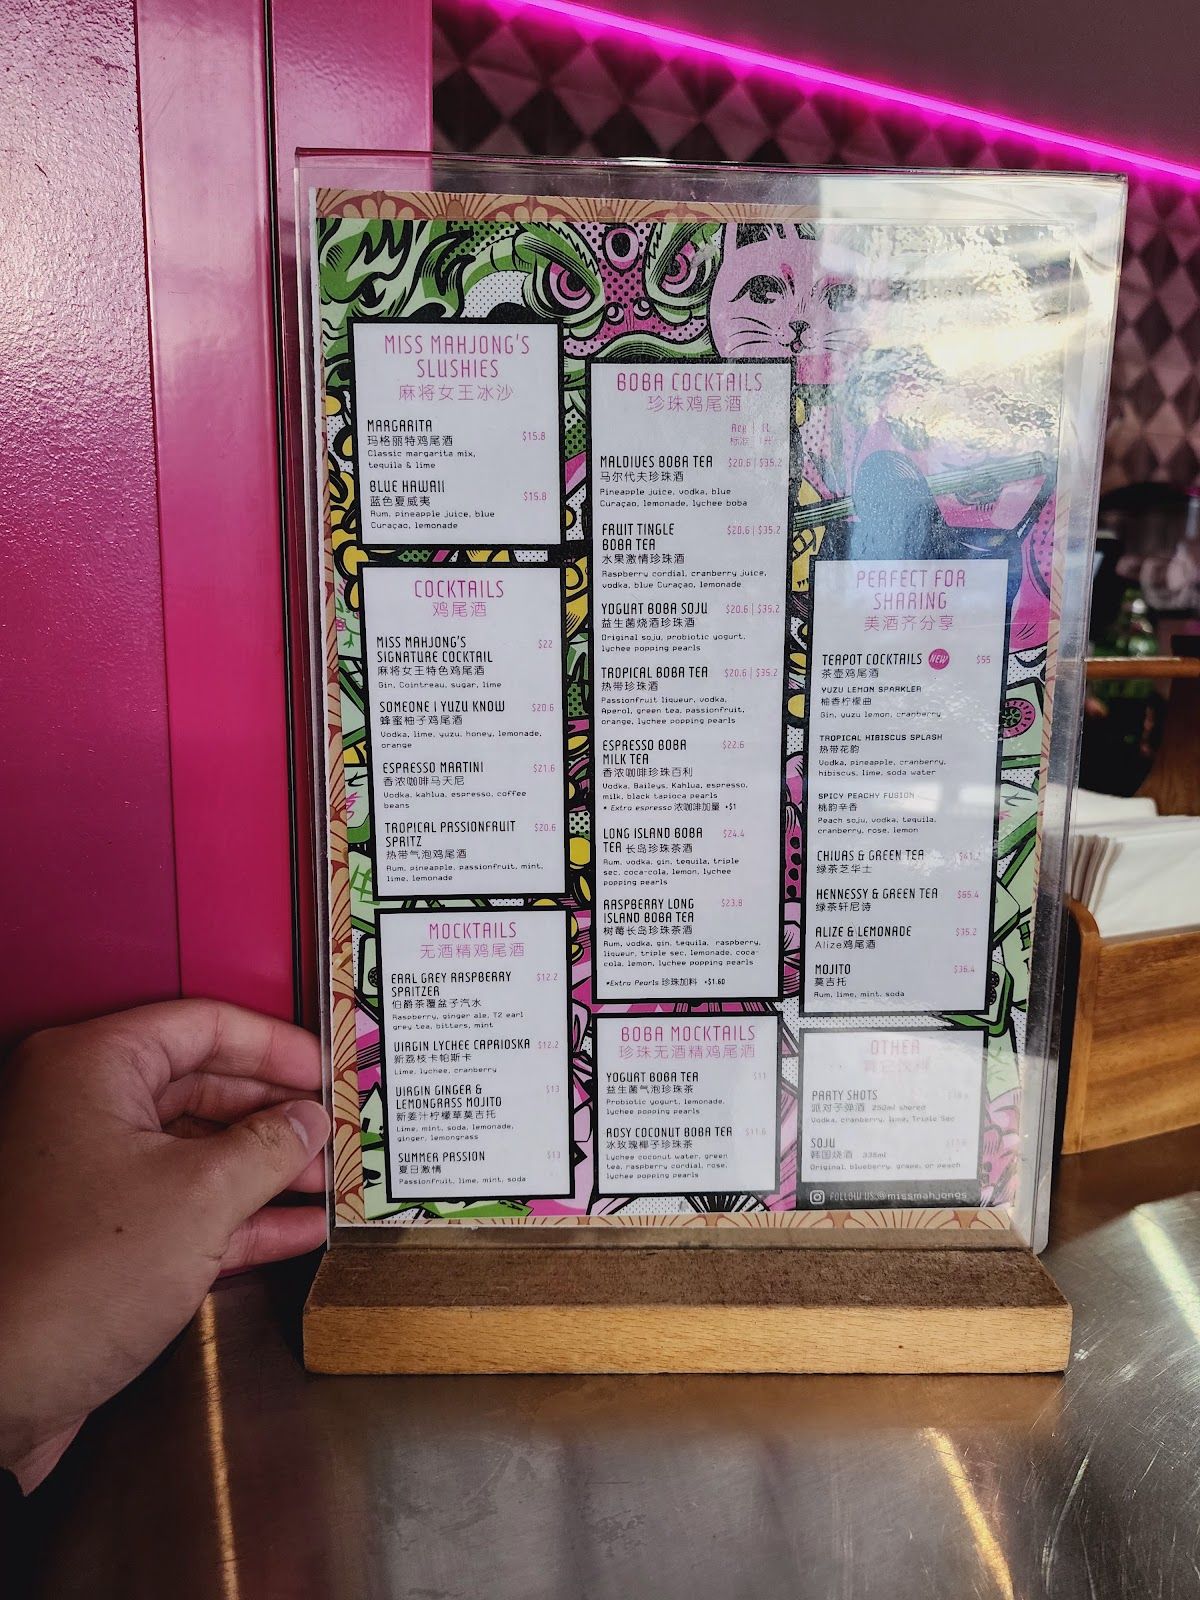 MISS MAHJONG'S
SLUSHIES
麻将女王冰沙
MARGARITA
玛格丽特鸡尾酒
$15.8
Classic margarita mix,
tequila & lime
BLUE HAWAII
蓝色夏威夷
$15.8
Rum, pineapple juice, blue
Curaçao, lemonade
COCKTAILS
鸡尾酒
MISS MAHJONG'S
SIGNATURE COCKTAIL
$22
麻将女王特色鸡尾酒
Gin, Cointreau, sugar, lime
SOMEONE I YUZU KNOW
$20.6
蜂蜜柚子鸡尾酒
Vodka, lime, yuzu, honey, lemonade,
orange
ESPRESSO MARTINI
$21.6
香浓咖啡马天尼
Vodka, kahlua, espresso, coffee
beans
TROPICAL PASSIONFRUIT
$20.6
SPRITZ
热带气泡鸡尾酒
Rum, pineapple, passionfruit, mint,
lime, lemonade
MOCKTAILS
无酒精鸡尾酒
EARL GREY RASPBERRY
$12.2
SPRITZER
伯爵茶覆盆子汽水
Raspberry, ginger ale, T2 earl
grey tea, bitters, mint
VIRGIN LYCHEE CAPRIOSKA $12.2
新荔枝卡帕斯卡
Lime, lychee, cranberry
VIRGIN GINGER &
$13
LEMONGRASS MOJITO
新姜汁柠檬草莫吉托
Lime, mint, soda, lemonade,
ginger, lemongrass
SUMMER PASSION
$13
夏日激情
Passionfruit, lime, mint, soda
BOBA COCKTAILS
珍珠鸡尾酒
Reg | 1L
标准 | 1升
MALDIVES BOBA TEA $20.6 | $35.2
马尔代夫珍珠酒
Pineapple juice, vodka, blue
Curaçao, lemonade, lychee boba
FRUIT TINGLE $20.6 | $35.2
BOBA TEA
水果激情珍珠酒
Raspberry cordial, cranberry juice,
vodka, blue Curaçao, lemonade
YOGURT BOBA SOJU $20.6 | $35.2
益生菌烧酒珍珠酒
Original soju, probiotic yogurt,
lychee popping pearls
TROPICAL BOBA TEA $20.6 | $35.2
热带珍珠酒
Passionfruit liqueur, vodka,
Aperol, green tea, passionfruit,
orange, lychee popping pearls
ESPRESSO BOBA $22.6
MILK TEA
香浓咖啡珍珠百利
Vodka, Baileys, Kahlua, espresso,
milk, black tapioca pearls
* Extra espresso 浓咖啡加量 +$1
LONG ISLAND BOBA $24.4
TEA 长岛珍珠茶酒
Rum, vodka, gin, tequila, triple
sec, coca-cola, lemon, lychee
popping pearls
RASPBERRY LONG $23.8
ISLAND BOBA TEA
树莓长岛珍珠茶酒
Rum, vodka, gin, tequila, raspberry,
liqueur, triple sec, lemonade, coca-
cola, lemon, lychee popping pearls
*Extra Pearls 珍珠加料 +$1.60
BOBA MOCKTAILS
珍珠无酒精鸡尾酒
YOGURT BOBA TEA $11
益生菌气泡珍珠茶
Probiotic yogurt, lemonade,
lychee popping pearls
ROSY COCONUT BOBA TEA $11.6
冰玫瑰椰子珍珠茶
Lychee coconut water, green
tea, raspberry cordial, rose,
lychee popping pearls
PERFECT FOR
SHARING
美酒齐分享
TEAPOT COCKTAILS NEW $55
茶壶鸡尾酒
YUZU LEMON SPARKLER
柚香柠檬曲
Gin, yuzu lemon, cranberry
TROPICAL HIBISCUS SPLASH
热带花韵
Vodka, pineapple, cranberry,
hibiscus, lime, soda water
SPICY PEACHY FUSION
桃韵辛香
Peach soju, vodka, tequila,
cranberry, rose, lemon
CHIVAS & GREEN TEA
绿茶芝华士
HENNESSY & GREEN TEA $65.4
绿茶轩尼诗
ALIZE & LEMONADE $35.2
Alize鸡尾酒
MOJITO $36.4
莫吉托
Rum, lime, mint, soda
OTHER
PARTY SHOTS
派对子弹酒 250ml shared
Vodka, cranberry, lime, Triple Sec
SOJU
韩国烧酒 335ml
Original, blueberry, grape, or peach
FOLLOW US @missmahjongs